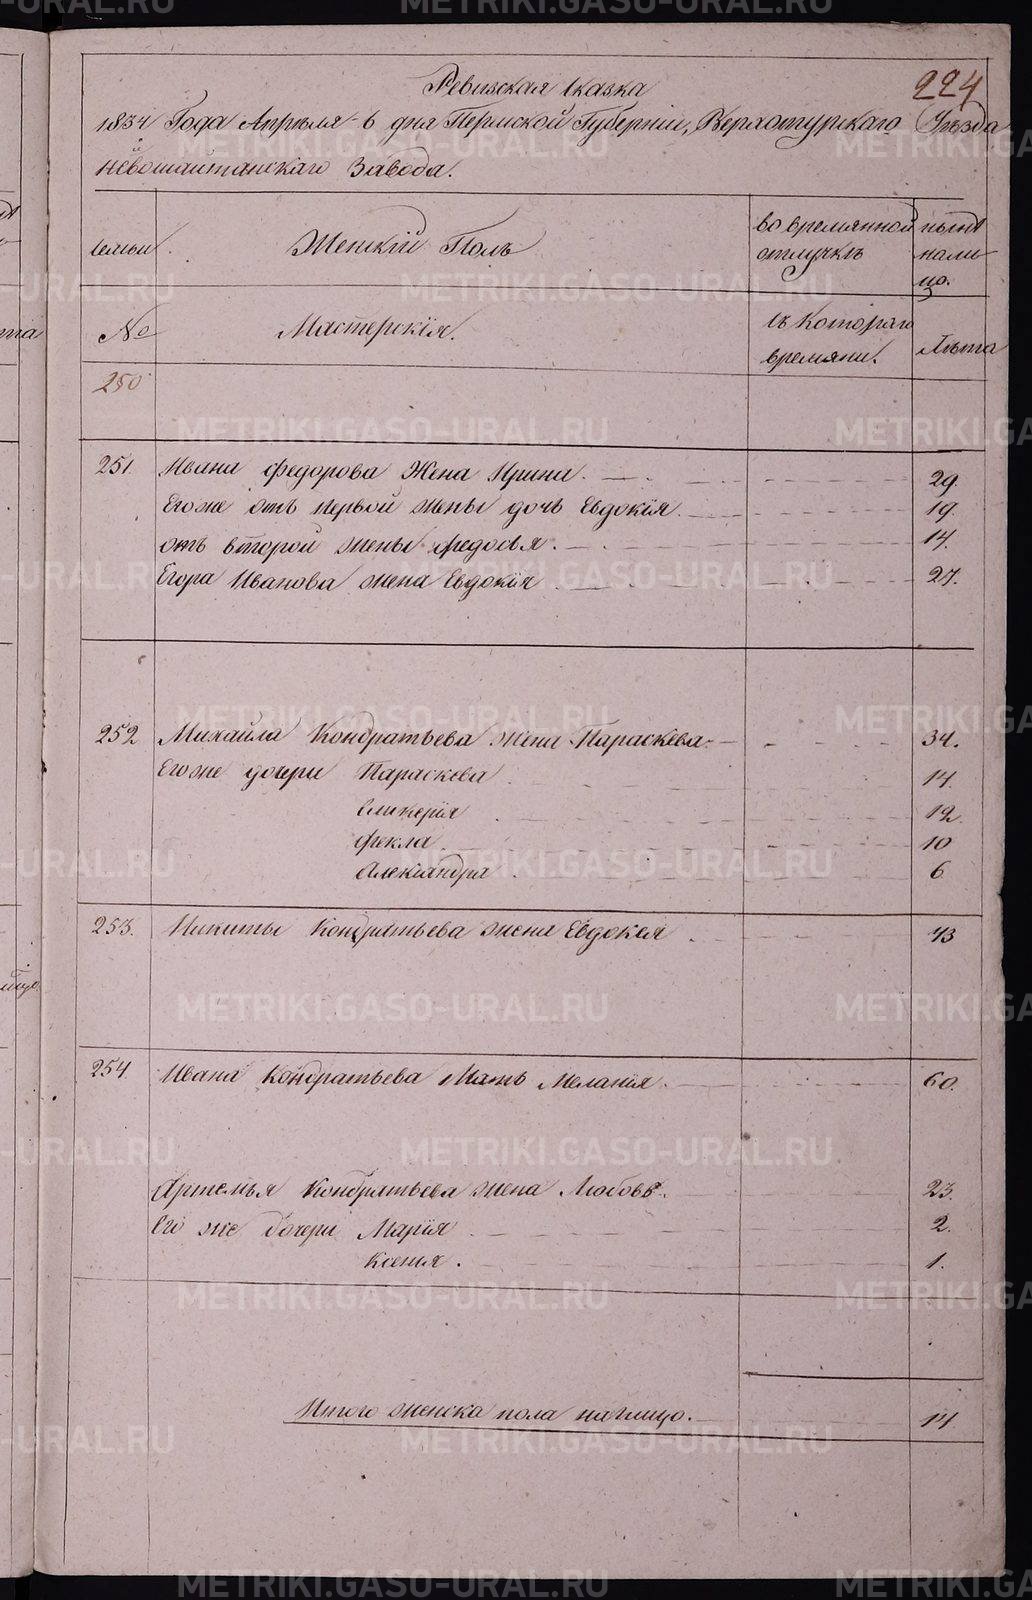 224
Ревизская Сказка
1834 Года Апреля 6 дня Пермской Губернии, Верхотурскаго Уезда
Невошайтанскаго Завода.
Семьи
Женский Полъ
во времянной отлучкѣ
ныне на лицо.
№
Мастерскія.
съ котораго времяни.
Лѣта
250
251. Ивана Федорова Жена Ирина. 29.
Егоже отъ первой жены дочь Евдокія. 19.
отъ второй жены Федосья. 14.
Егора Иванова жена Евдокія 27.
252 Михайла Кондратьева жена Параскева. 34.
Егоже дочери Параскева 14.
Гликерія 12.
Фекла. 10
Александра 6
253. Никиты Кондратьева жена Евдокея 43
254. Ивана Кондратьева Мать Меланія. 60.
Артемья Кондратьева жена Любовь. 23.
Его же дочери Марія 2.
Ксенія. 1.
Итого женска пола налицо. 14.
METRIKI.GASO-URAL.RU